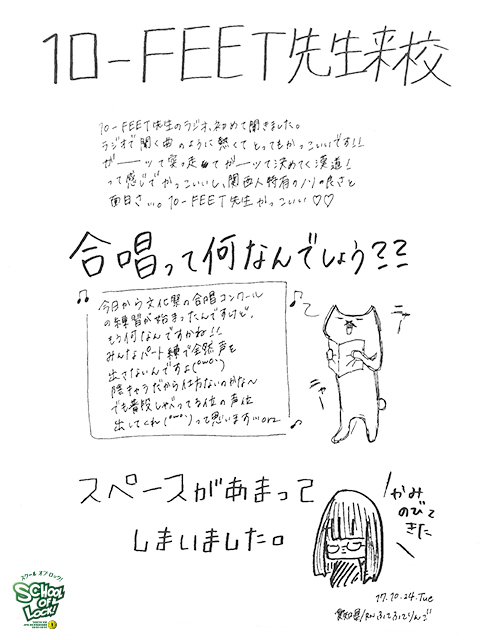 10-FEET先生来校
10-FEET先生のラジオ、初めて聞きました。
ラジオで聞く曲のように熱くてとってもかっこいいです!!
がーーッて突っ走ってがーーッて決めてく漢道!
って感じでかっこいいし、関西人特有のノリの良さと
面白さ。10-FEET先生かっこいい♡♡
合唱って何なんでしょう??
今日から文化祭の合唱コンクール
の練習が始まったんですけど、
もう何なんですかね!!
みんなパート練で全然声を
出さないんですよ(°ω°`)
陰キャラだから仕方ないのかな〜
でも普段しゃべってる位の声位
出してくれ(°ω°`)って思いますwww orz
ニャー
ニャー
スペースがあまって
しまいました。
かみ
のびて
きた
17.10.24.Tue
スクール オブ ロック!
SCHOOL
OF
LOCK!